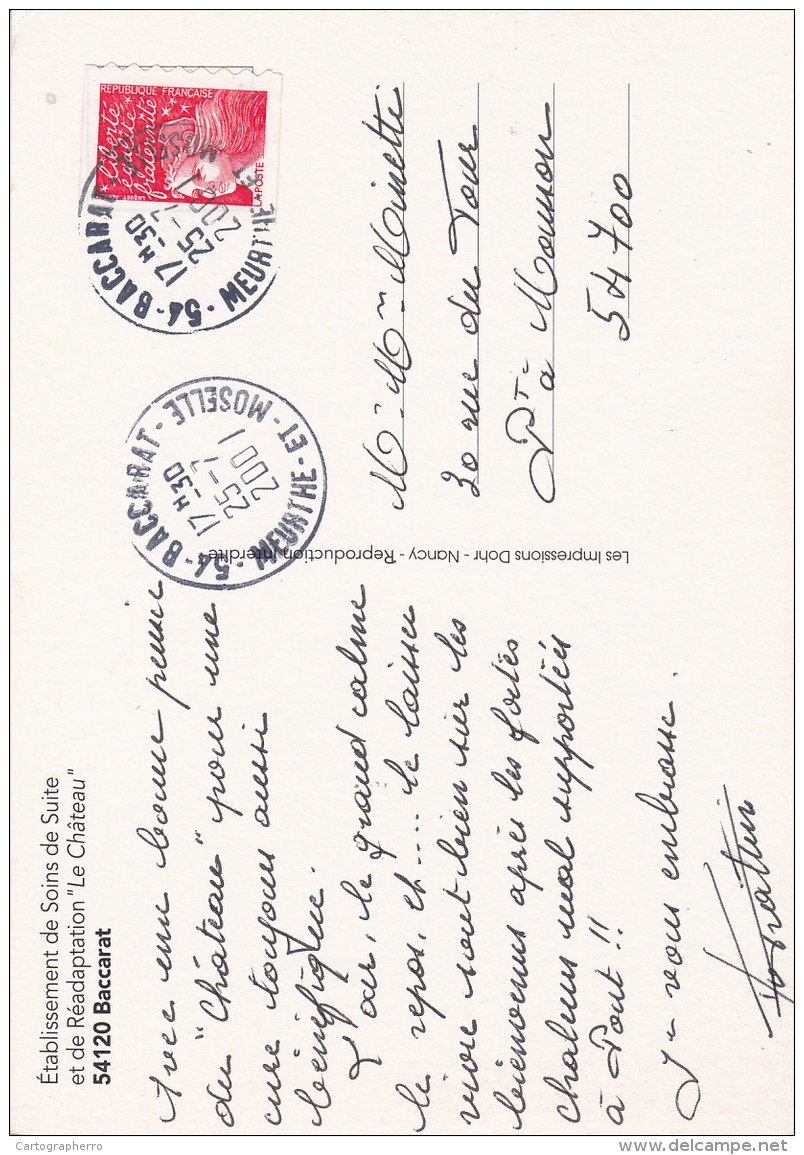 Établissement de Soins de Suite
et de Réadaptation "Le Château"
54120 Baccarat
Avec une bonne pensée
du "Château" pour une
cure toujours aussi
bénéfique.
Ici, le grand calme
le repos, et.... le laisser
vivre sont bien sur les
bienvenus après les fortes
chaleurs mal supportées
à Pont !!
Je vous embrasse.
Les Impressions Dohr - Nancy - Reproduction interdite
RÉPUBLIQUE FRANÇAISE
liberté
égalité
fraternité
LUQUET
LA POSTE
54 - BACCARAT - MEURTHE ET MOSELLE
17 H 30
25 - 7
2001
54 - BACCARAT - MEURTHE - ET - MOSELLE
17 H 30
25 - 7
2001
Mr Mme Minetti
20 rue du Tour
Pt à Mousson
54700
Cartographerro
delcampe.net